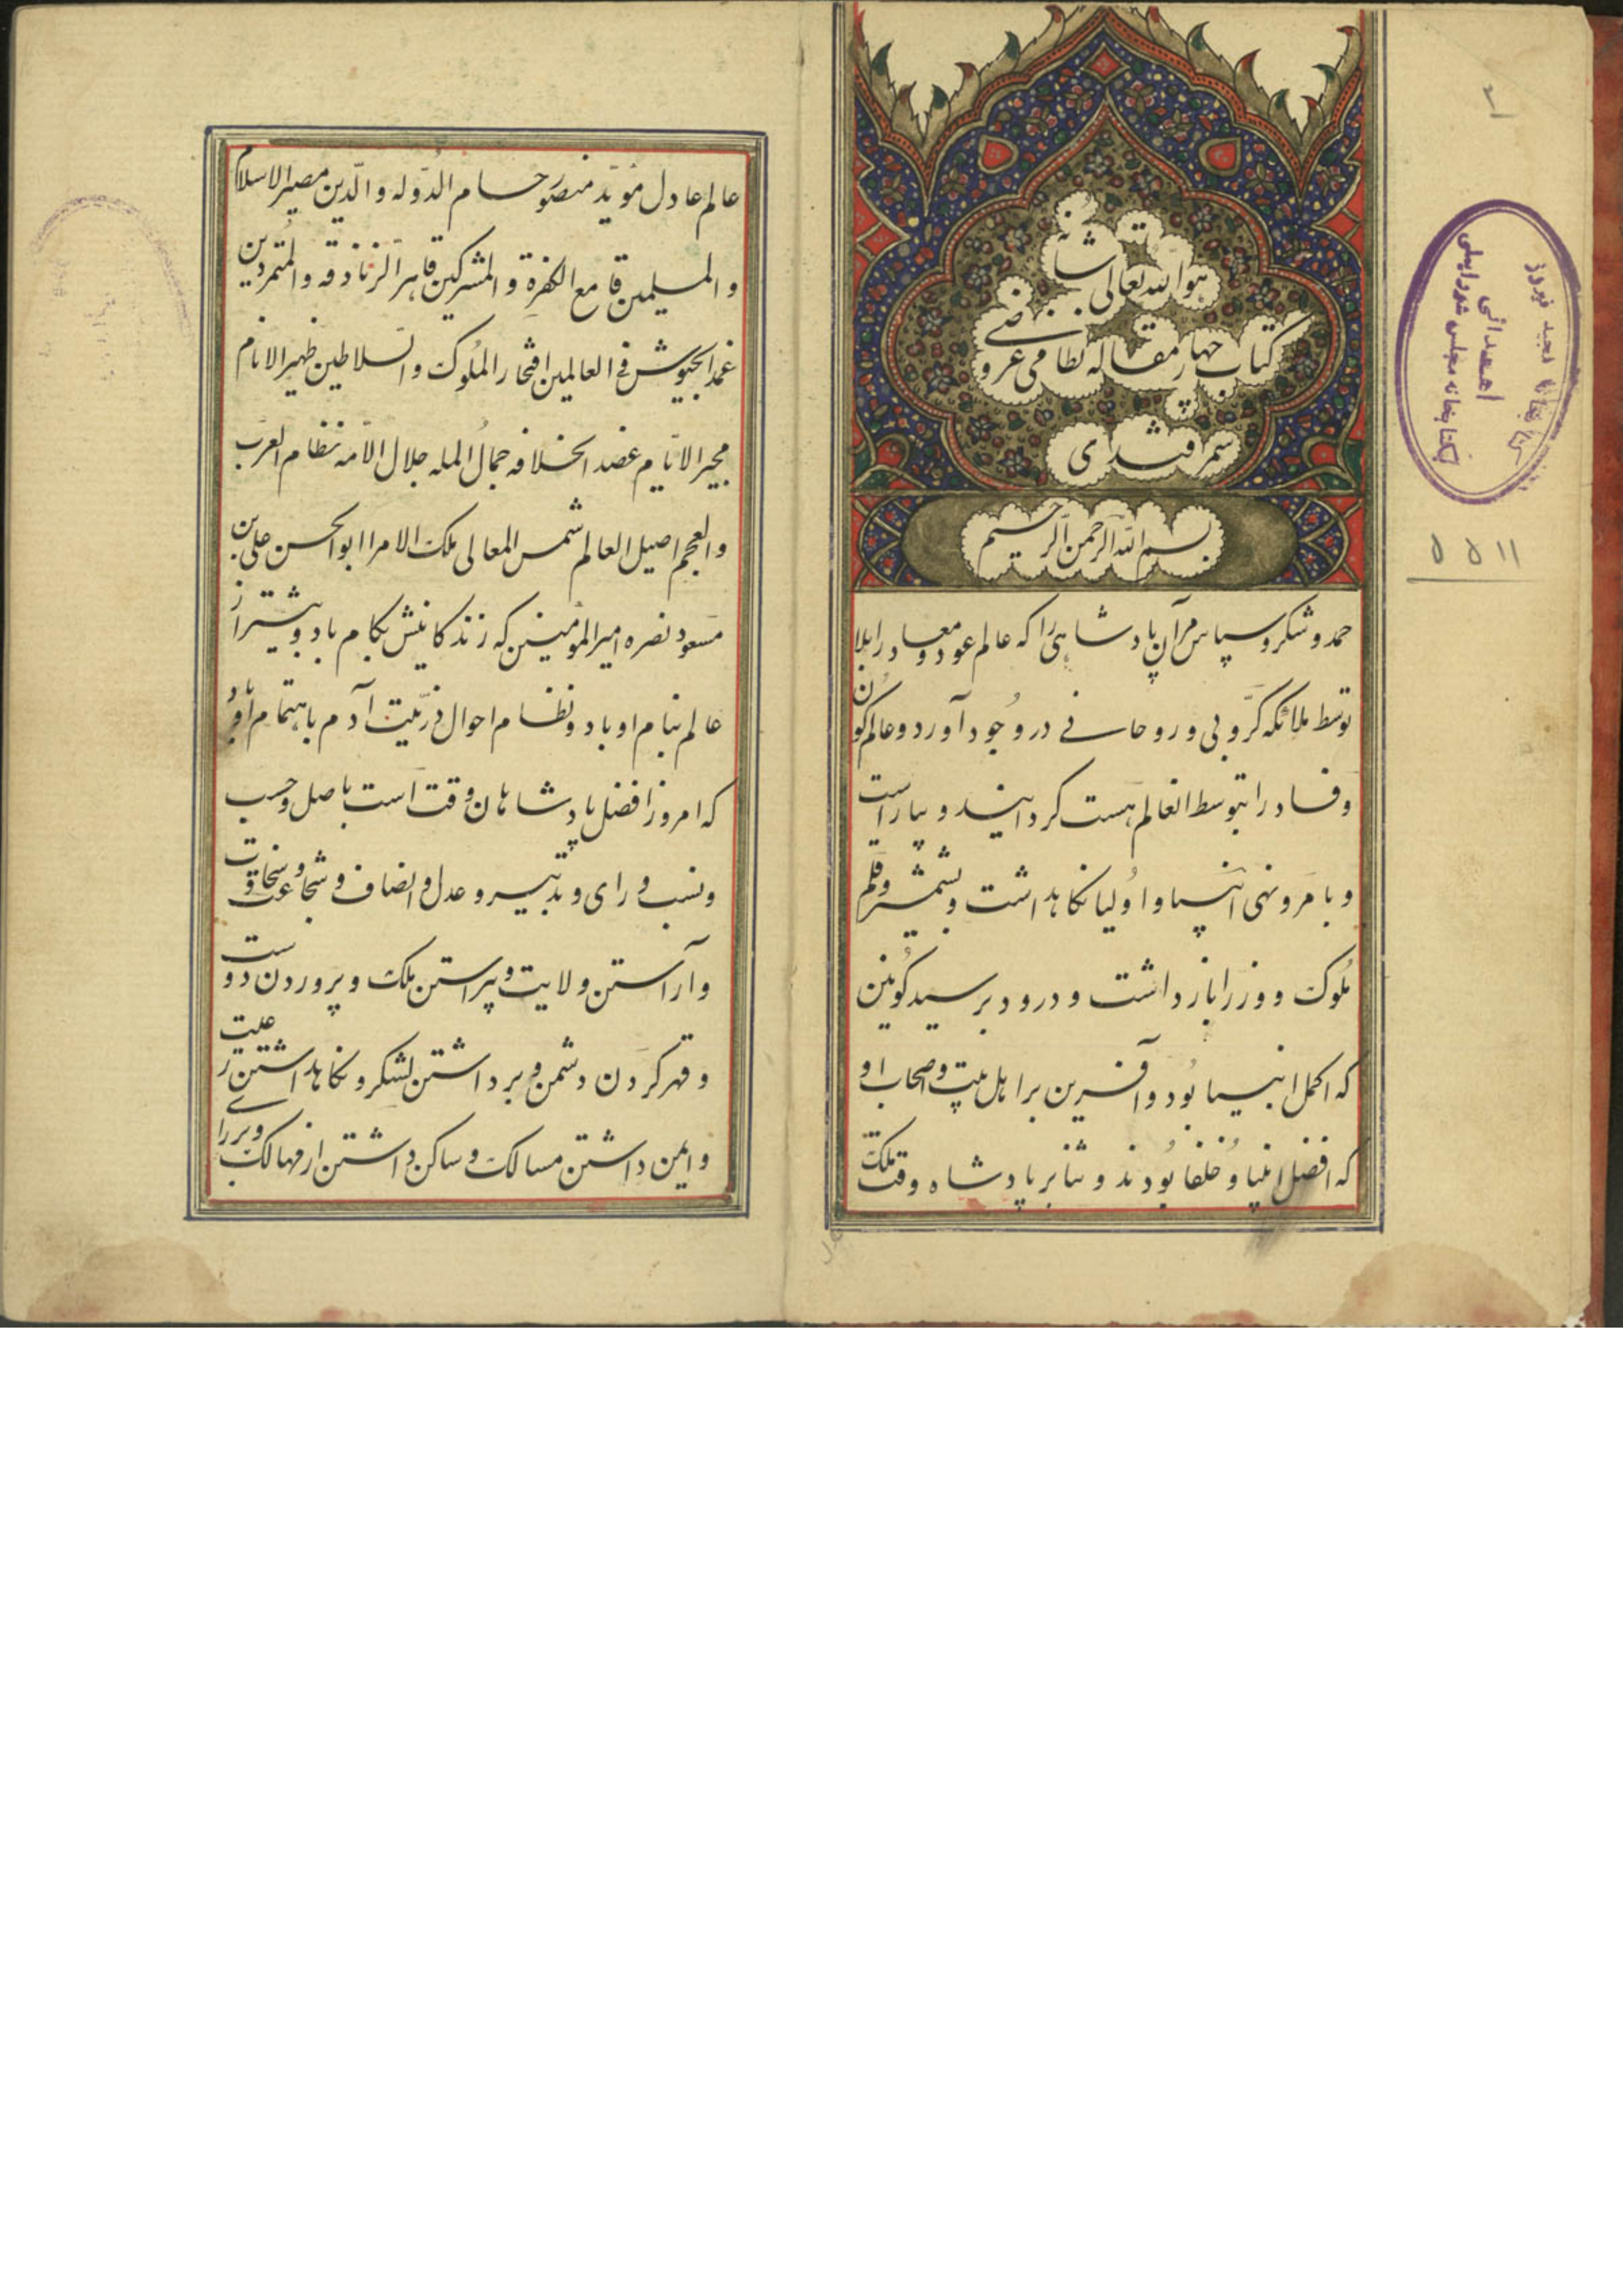 هو الله تعالی شأنه
کتاب چهار مقاله نظامی عروضی
سمرقندی
بسم الله الرحمن الرحیم
حمد و شکر و سپاس مر آن پادشاهی را که عالم عود و معاد را بلا
توسط ملائکه کروبی و روحانی در وجود آورد و عالم کون
و فساد را بتوسط انعالم هست کردانید و بیاراست
و بامر و نهی انبیا و اولیا نکاهداشت و بشمشیر و قلم
ملوک و وزرا بازداشت و درود بر سید کونین
که اکمل انبیا بود و آفرین بر اهل بیت و اصحاب او
که افضل انبیا و خلفا بودند و ثنا بر پادشاه وقت ملک
عالم عادل موید منصور حسام الدوله والدین مصیر الاسلام
والمسلمین قامع الکفرة والمشرکین قاهر الزنادقه والمتمردین
عمدالجیوش فی العالمین افتخار الملوک والسلاطین ظهیر الانام
مجیر الایام عضد الخلافه جمال المله جلال الامه نظام العرب
والعجم اصیل العالم شمس المعالی ملک الامرا ابوالحسن علی بن
مسعود نصره امیرالمومنین که زندکانیش بکام باد و بیشتر از
عالم بنام او باد و نظام احوال ذریت آدم باهتمام او باد
که امروز افضل پادشاهان وقت است باصل و حسب
و نسب و رای و تدبیر و عدل و انصاف و شجاعت و سخاوت
و آراستن ولایت و پیراستن ملک و پروردن دوست
و قهر کردن دشمن و برداشتن لشکر و نکاهداشتن رعیت
و ایمن داشتن مسالک و ساکن داشتن از مهالک برای
۲
کتابخانه مجلس شورایملی
اهدائی
فیروز
۵۵۱۱